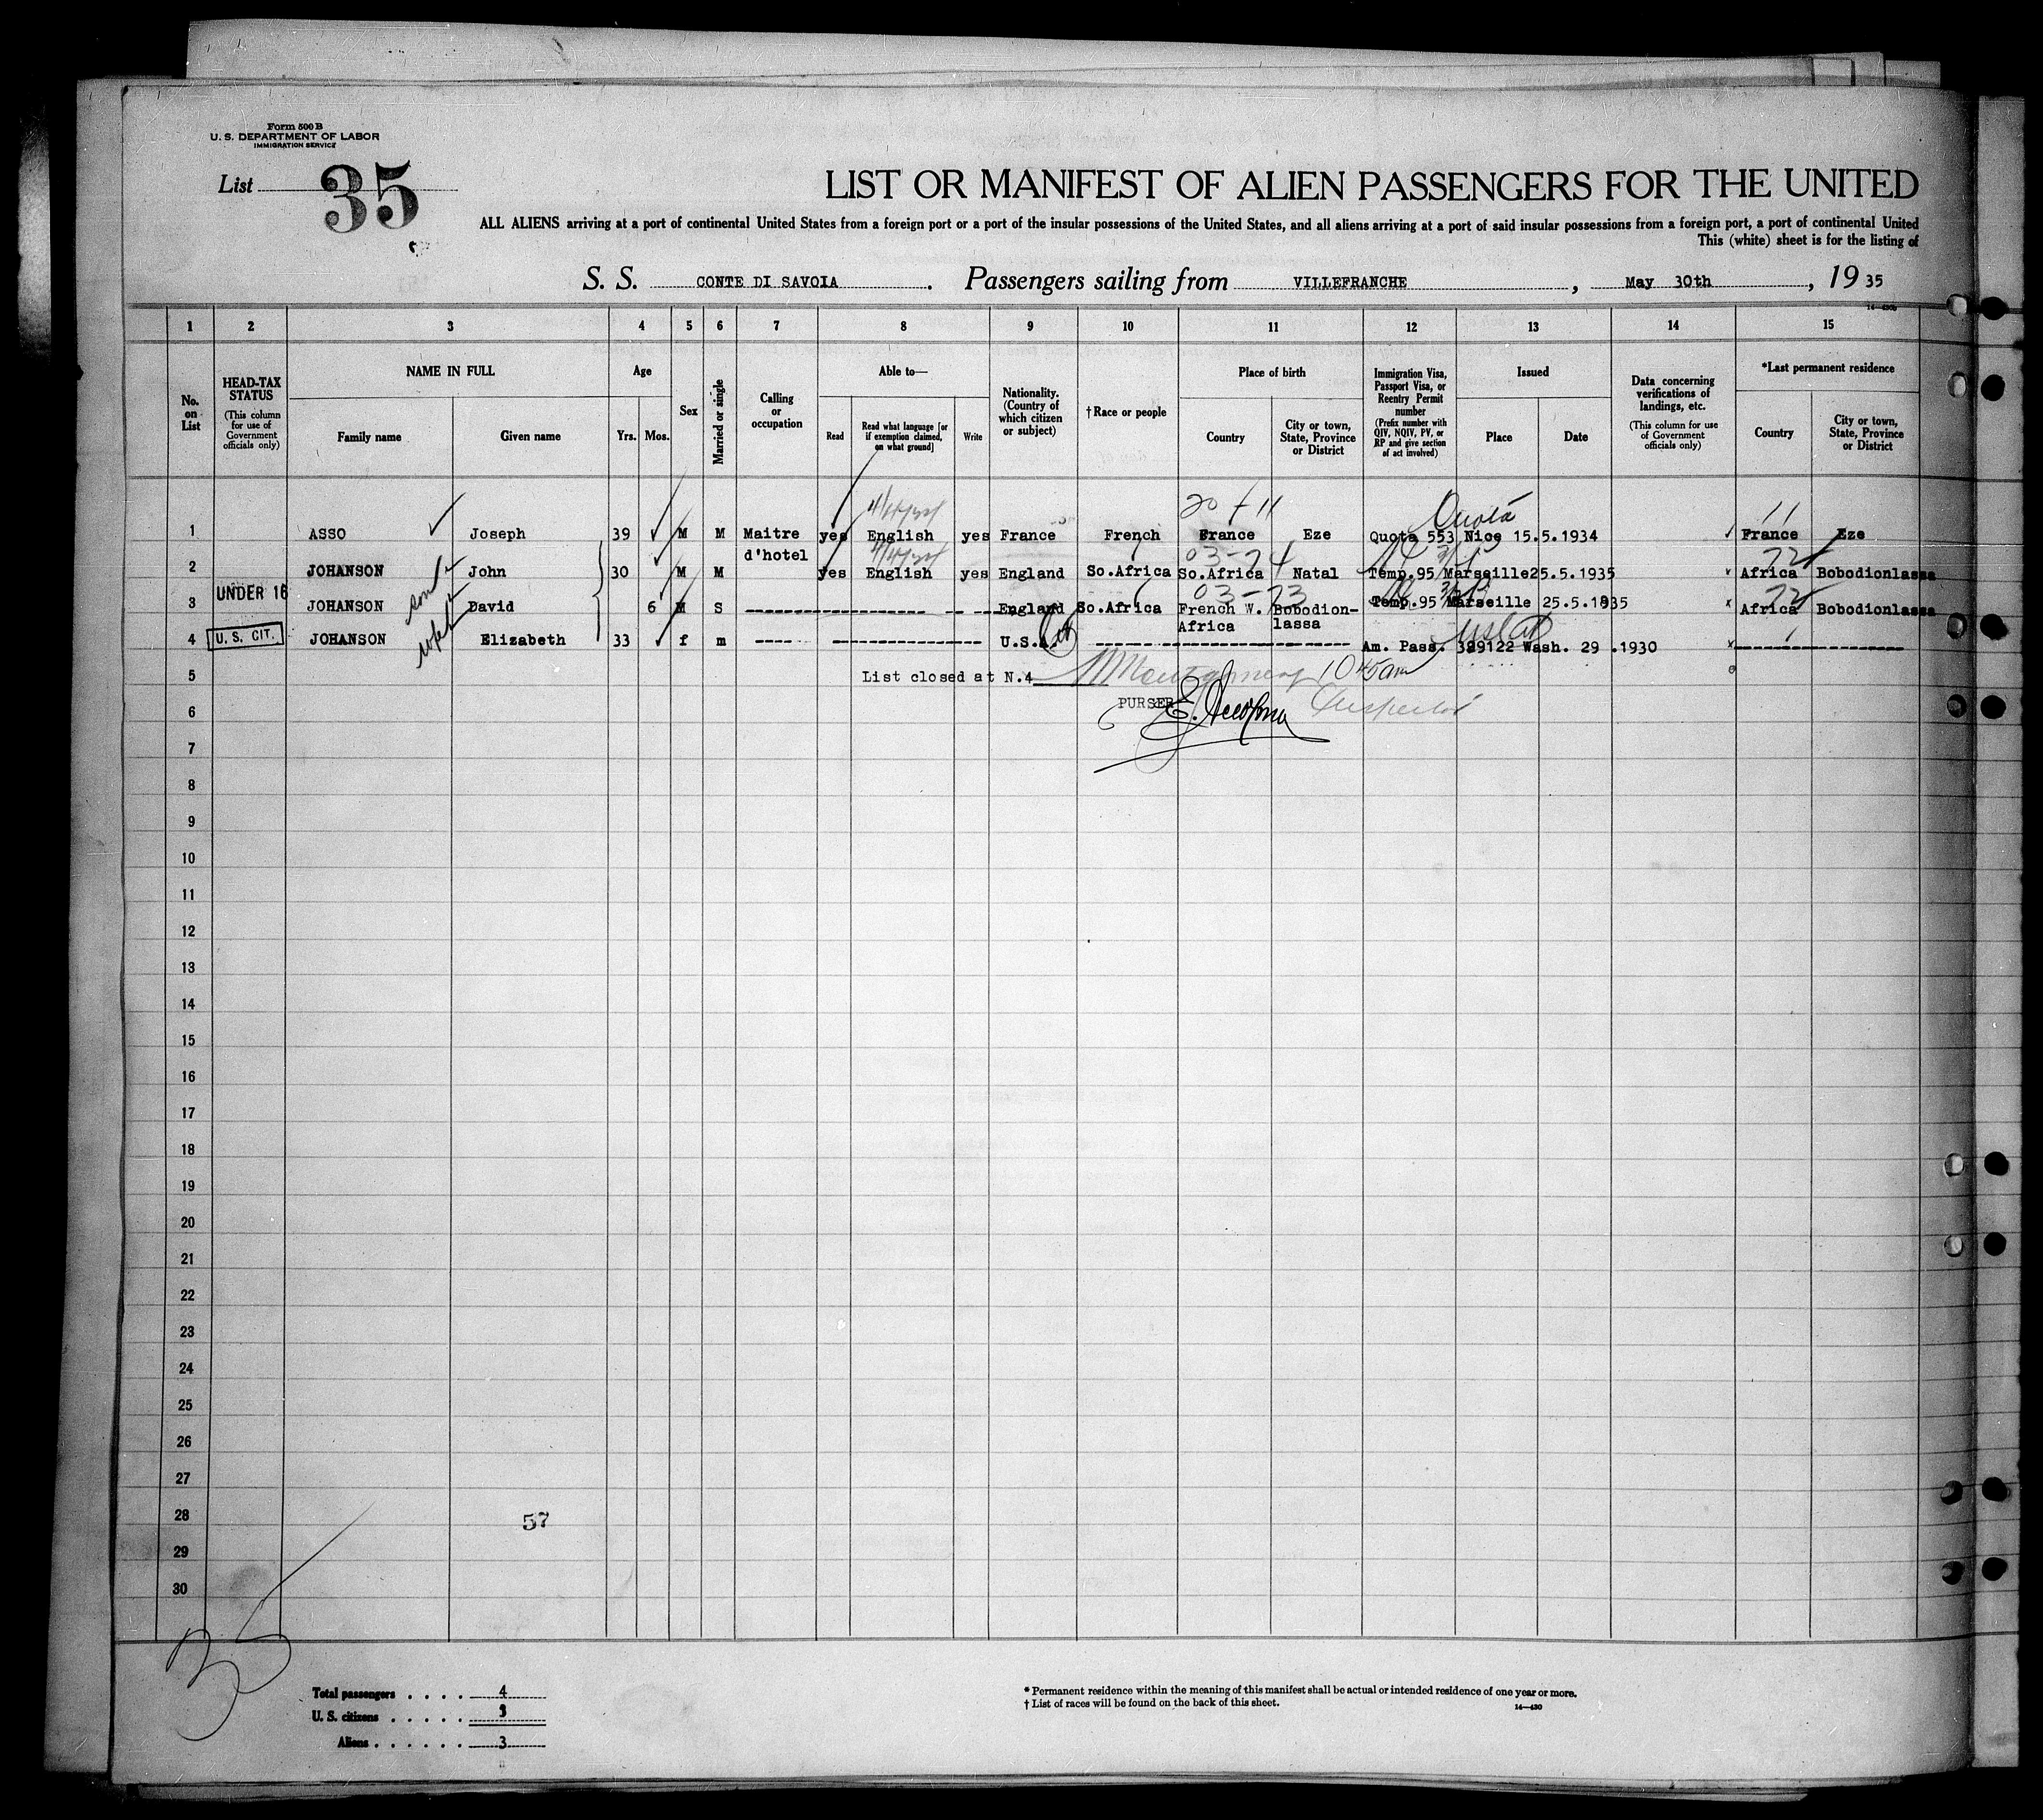 Form 500 B
U. S. DEPARTMENT OF LABOR
IMMIGRATION SERVICE
List 35
LIST OR MANIFEST OF ALIEN PASSENGERS FOR THE UNITED
ALL ALIENS arriving at a port of continental United States from a foreign port or a port of the insular possessions of the United States, and all aliens arriving at a port of said insular possessions from a foreign port, a port of continental United
This (white) sheet is for the listing of
S. S. CONTE DI SAVOIA. Passengers sailing from VILLEFRANCHE, May 30th, 1935
14—430
1 2 3 4 5 6 7 8 9 10 11 12 13 14 15
No. on List
HEAD-TAX STATUS (This column for use of Government officials only)
NAME IN FULL Family name Given name
Age Yrs. Mos.
Sex
Married or single
Calling or occupation
Able to— Read Read what language [or if exemption claimed, on what ground] Write
Nationality. (Country of which citizen or subject)
†Race or people
Place of birth Country City or town, State, Province or District
Immigration Visa, Passport Visa, or Reentry Permit number (Prefix number with QIV, NQIV, PV, or RP and give section of act involved)
Issued Place Date
Data concerning verifications of landings, etc. (This column for use of Government officials only)
*Last permanent residence Country City or town, State, Province or District
20 + 11 Quota 11
1 ASSO Joseph 39 M M Maitre d'hotel yes English yes France French France Eze Quota 553 Nice 15.5.1934 France Eze
03-74 72
2 JOHANSON John 30 M M yes English yes England So.Africa So.Africa Natal Temp.95 Marseille 25.5.1935 Africa Bobodionlassa
03-73 72
UNDER 16
3 JOHANSON son David 6 M S England So.Africa French W. Africa Bobodion-lassa Temp.95 Marseille 25.5.1935 Africa Bobodionlassa
4 U. S. CIT. JOHANSON wife Elizabeth 33 f m U.S.A. Am. Pass. 399122 Wash. 29 .1930
5 List closed at N.4 Montgomery 10 45am
6 PURSER Inspector
7
8
9
10
11
12
13
14
15
16
17
18
19
20
21
22
23
24
25
26
27
28 57
29
30
35
Total passengers . . . . 4
U. S. citizens . . . . .
Aliens . . . . . . 3
* Permanent residence within the meaning of this manifest shall be actual or intended residence of one year or more.
† List of races will be found on the back of this sheet.
14—430